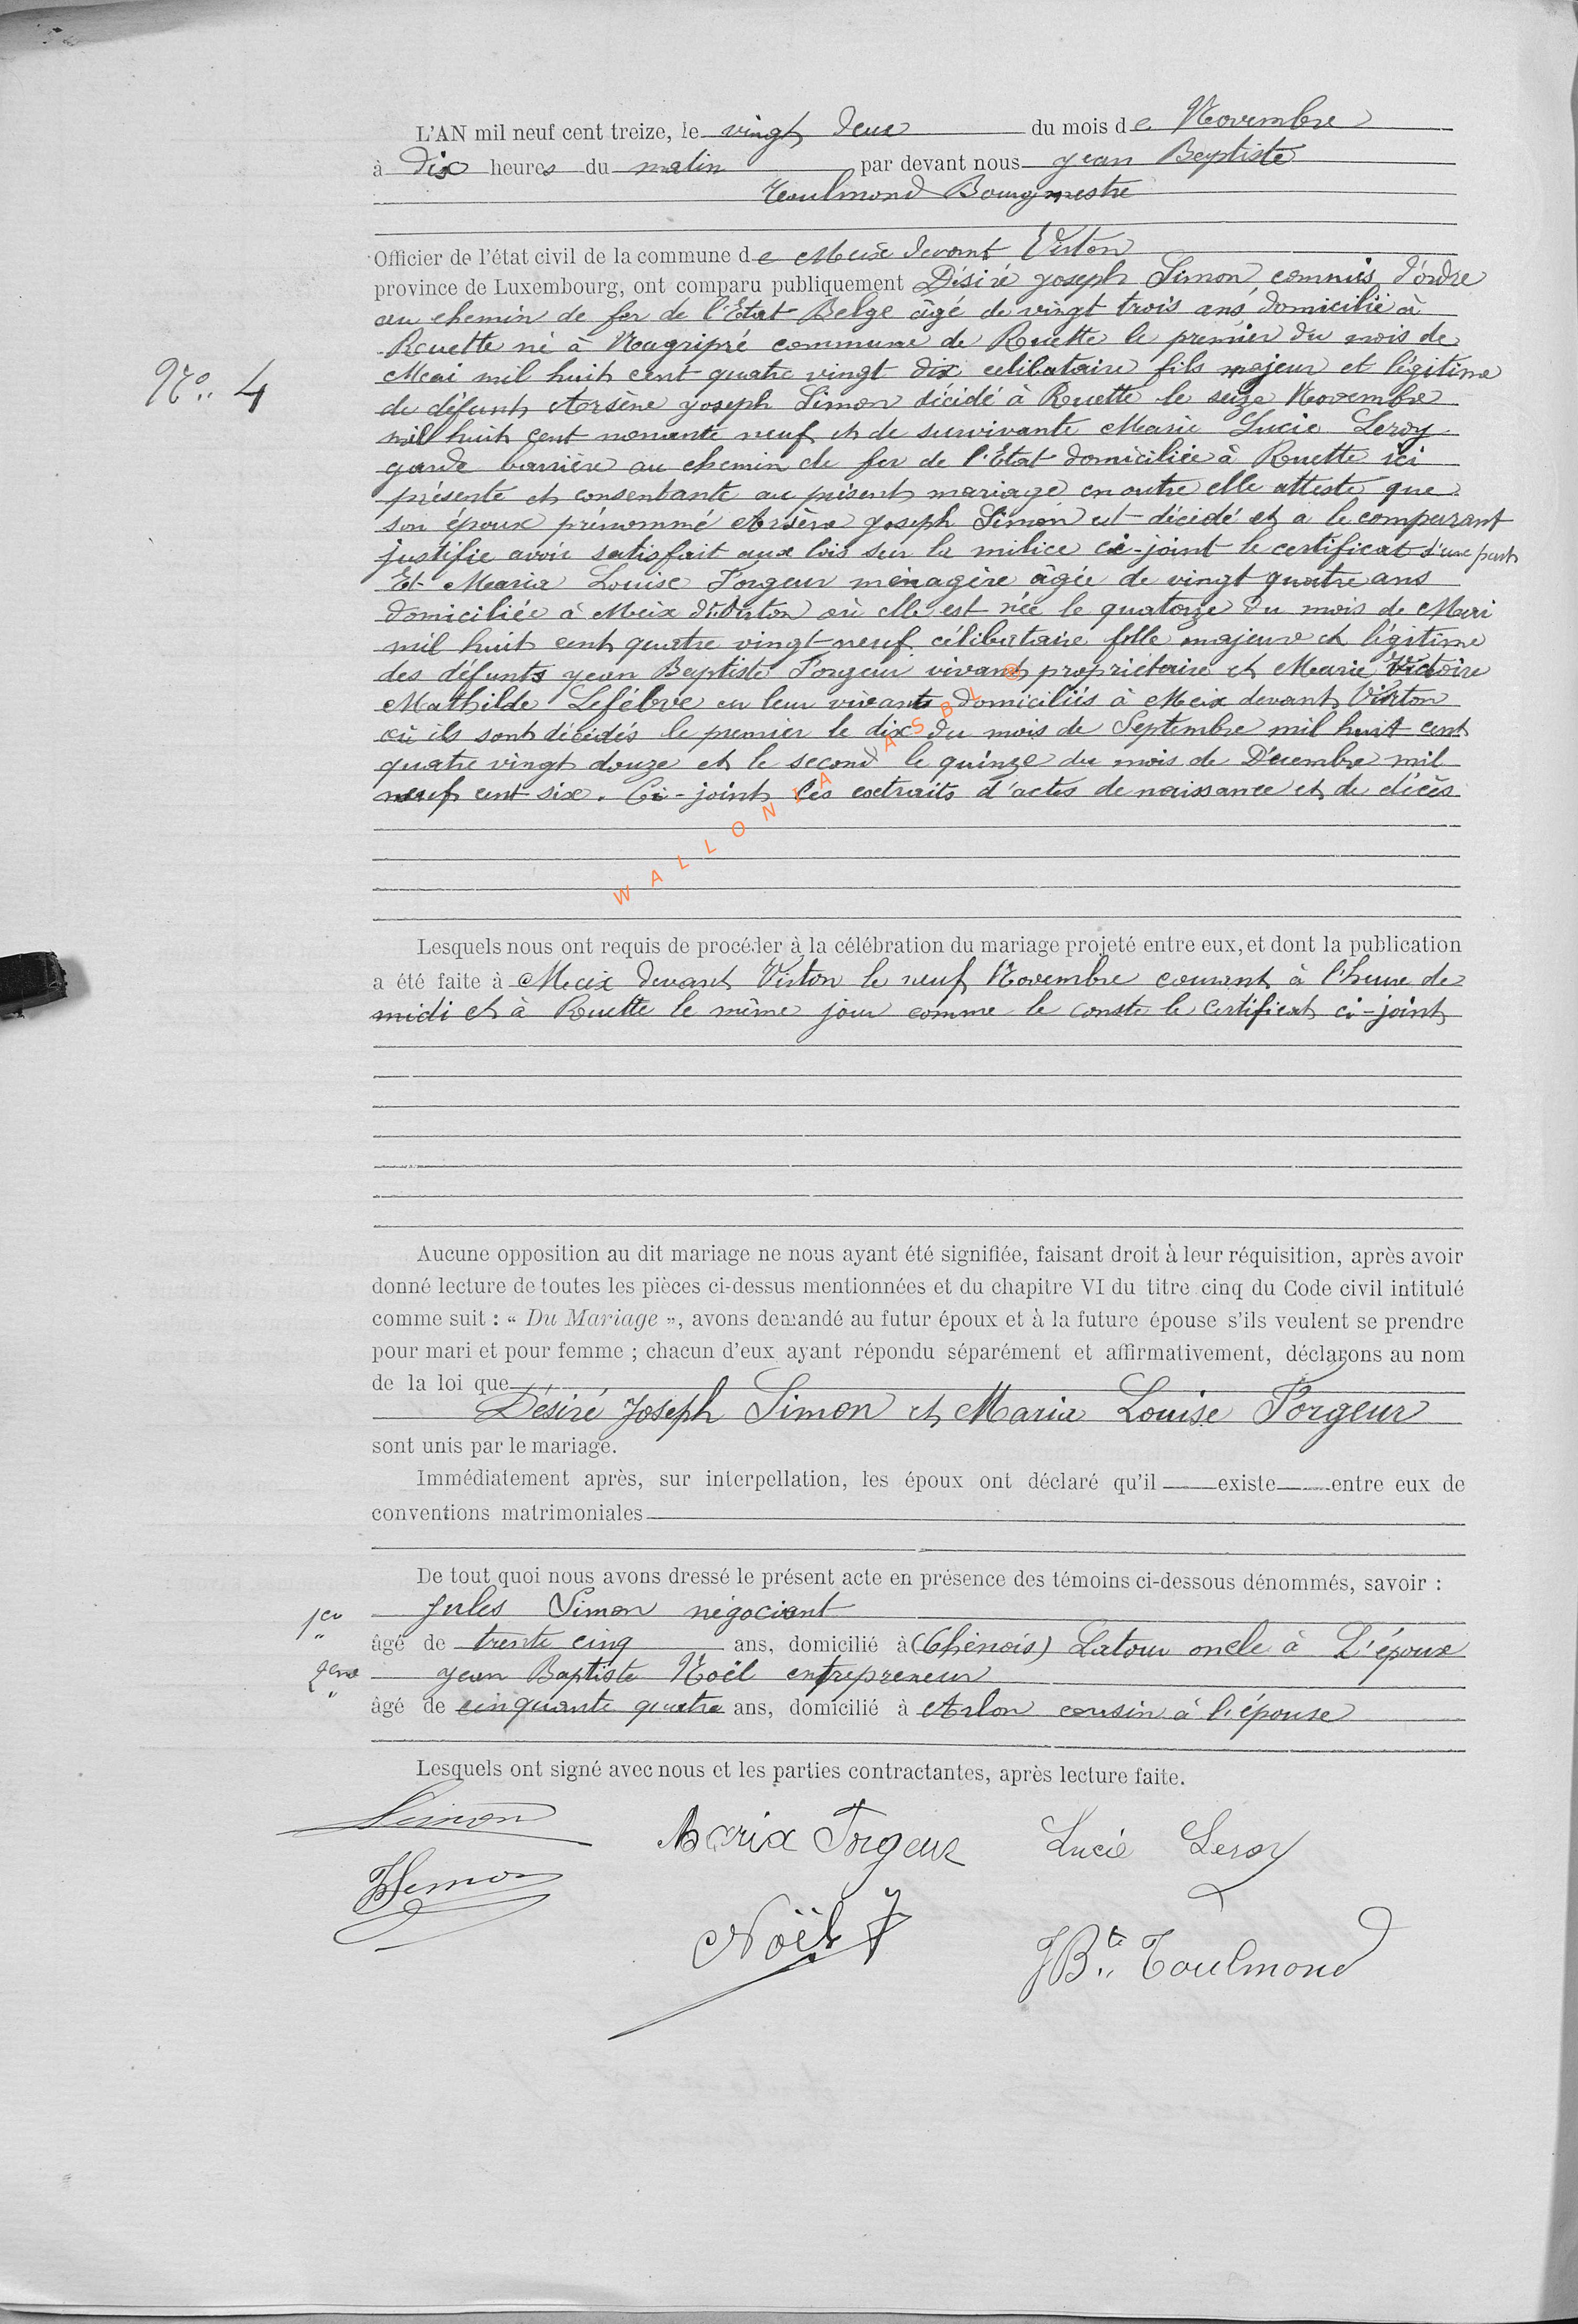 L'AN mil neuf cent treize, le vingt deux du mois de Novembre
à dix heures du matin par devant nous Jean Baptiste
Toulmond Bourgmestre
Officier de l'état civil de la commune de Meix devant Virton
province de Luxembourg, ont comparu publiquement Désiré Joseph Simon, commis d'ordre
au chemin de fer de l'Etat Belge âgé de vingt trois ans domicilié à
Ruette né à Magripré commune de Ruette le premier du mois de
N° 4
Mai mil huit cent quatre vingt dix célibataire fils majeur et légitime
de défunt Arsène Joseph Simon décédé à Ruette le seize Novembre
mil huit cent nonante neuf et de survivante Marie Lucie Leroy
garde barrière au chemin de fer de l'Etat domiciliée à Ruette ici
présente et consentante au présent mariage en outre elle atteste que
son époux prénommé Arsène Joseph Simon est décédé et a le comparant
justifie avoir satisfait aux lois sur la milice ci-joint le certificat d'une part
Et Maria Louise Forgeur ménagère âgée de vingt quatre ans
domiciliée à Meix dt Virton où elle est née le quatorze du mois de Mai
mil huit cent quatre vingt-neuf célibataire fille majeure et légitime
des défunts Jean Baptiste Forgeur vivant propriétaire et Marie Victoire
Mathilde Lefébvre en leur vivants domiciliés à Meix devant Virton
où ils sont décédés le premier le dix du mois de Septembre mil huit cent
quatre vingt douze et le second le quinze du mois de Décembre mil
neuf cent six. Ci-joint les extraits d'actes de naissance et de décès
WALLONIA ASBL ©
Lesquels nous ont requis de procéder à la célébration du mariage projeté entre eux, et dont la publication
a été faite à Meix devant Virton le neuf Novembre courant à l'heure de
midi et à Ruette le même jour comme le conste le certificat ci-joint
Aucune opposition au dit mariage ne nous ayant été signifiée, faisant droit à leur réquisition, après avoir
donné lecture de toutes les pièces ci-dessus mentionnées et du chapitre VI du titre cinq du Code civil intitulé
comme suit : « Du Mariage », avons demandé au futur époux et à la future épouse s'ils veulent se prendre
pour mari et pour femme ; chacun d'eux ayant répondu séparément et affirmativement, déclarons au nom
de la loi que
Désiré Joseph Simon et Maria Louise Forgeur
sont unis par le mariage.
Immédiatement après, sur interpellation, les époux ont déclaré qu'il existe entre eux de
conventions matrimoniales
De tout quoi nous avons dressé le présent acte en présence des témoins ci-dessous dénommés, savoir :
1er Jules Simon négociant
âgé de trente cinq ans, domicilié à (Chenois) Latour oncle à L'époux
2eme Jean Baptiste Noël entrepreneur
âgé de cinquante quatre ans, domicilié à Arlon cousin à l'épouse
Lesquels ont signé avec nous et les parties contractantes, après lecture faite.
Simon Maria Forgeur Lucie Leroy
JSimon Noël J JBte Toulmond